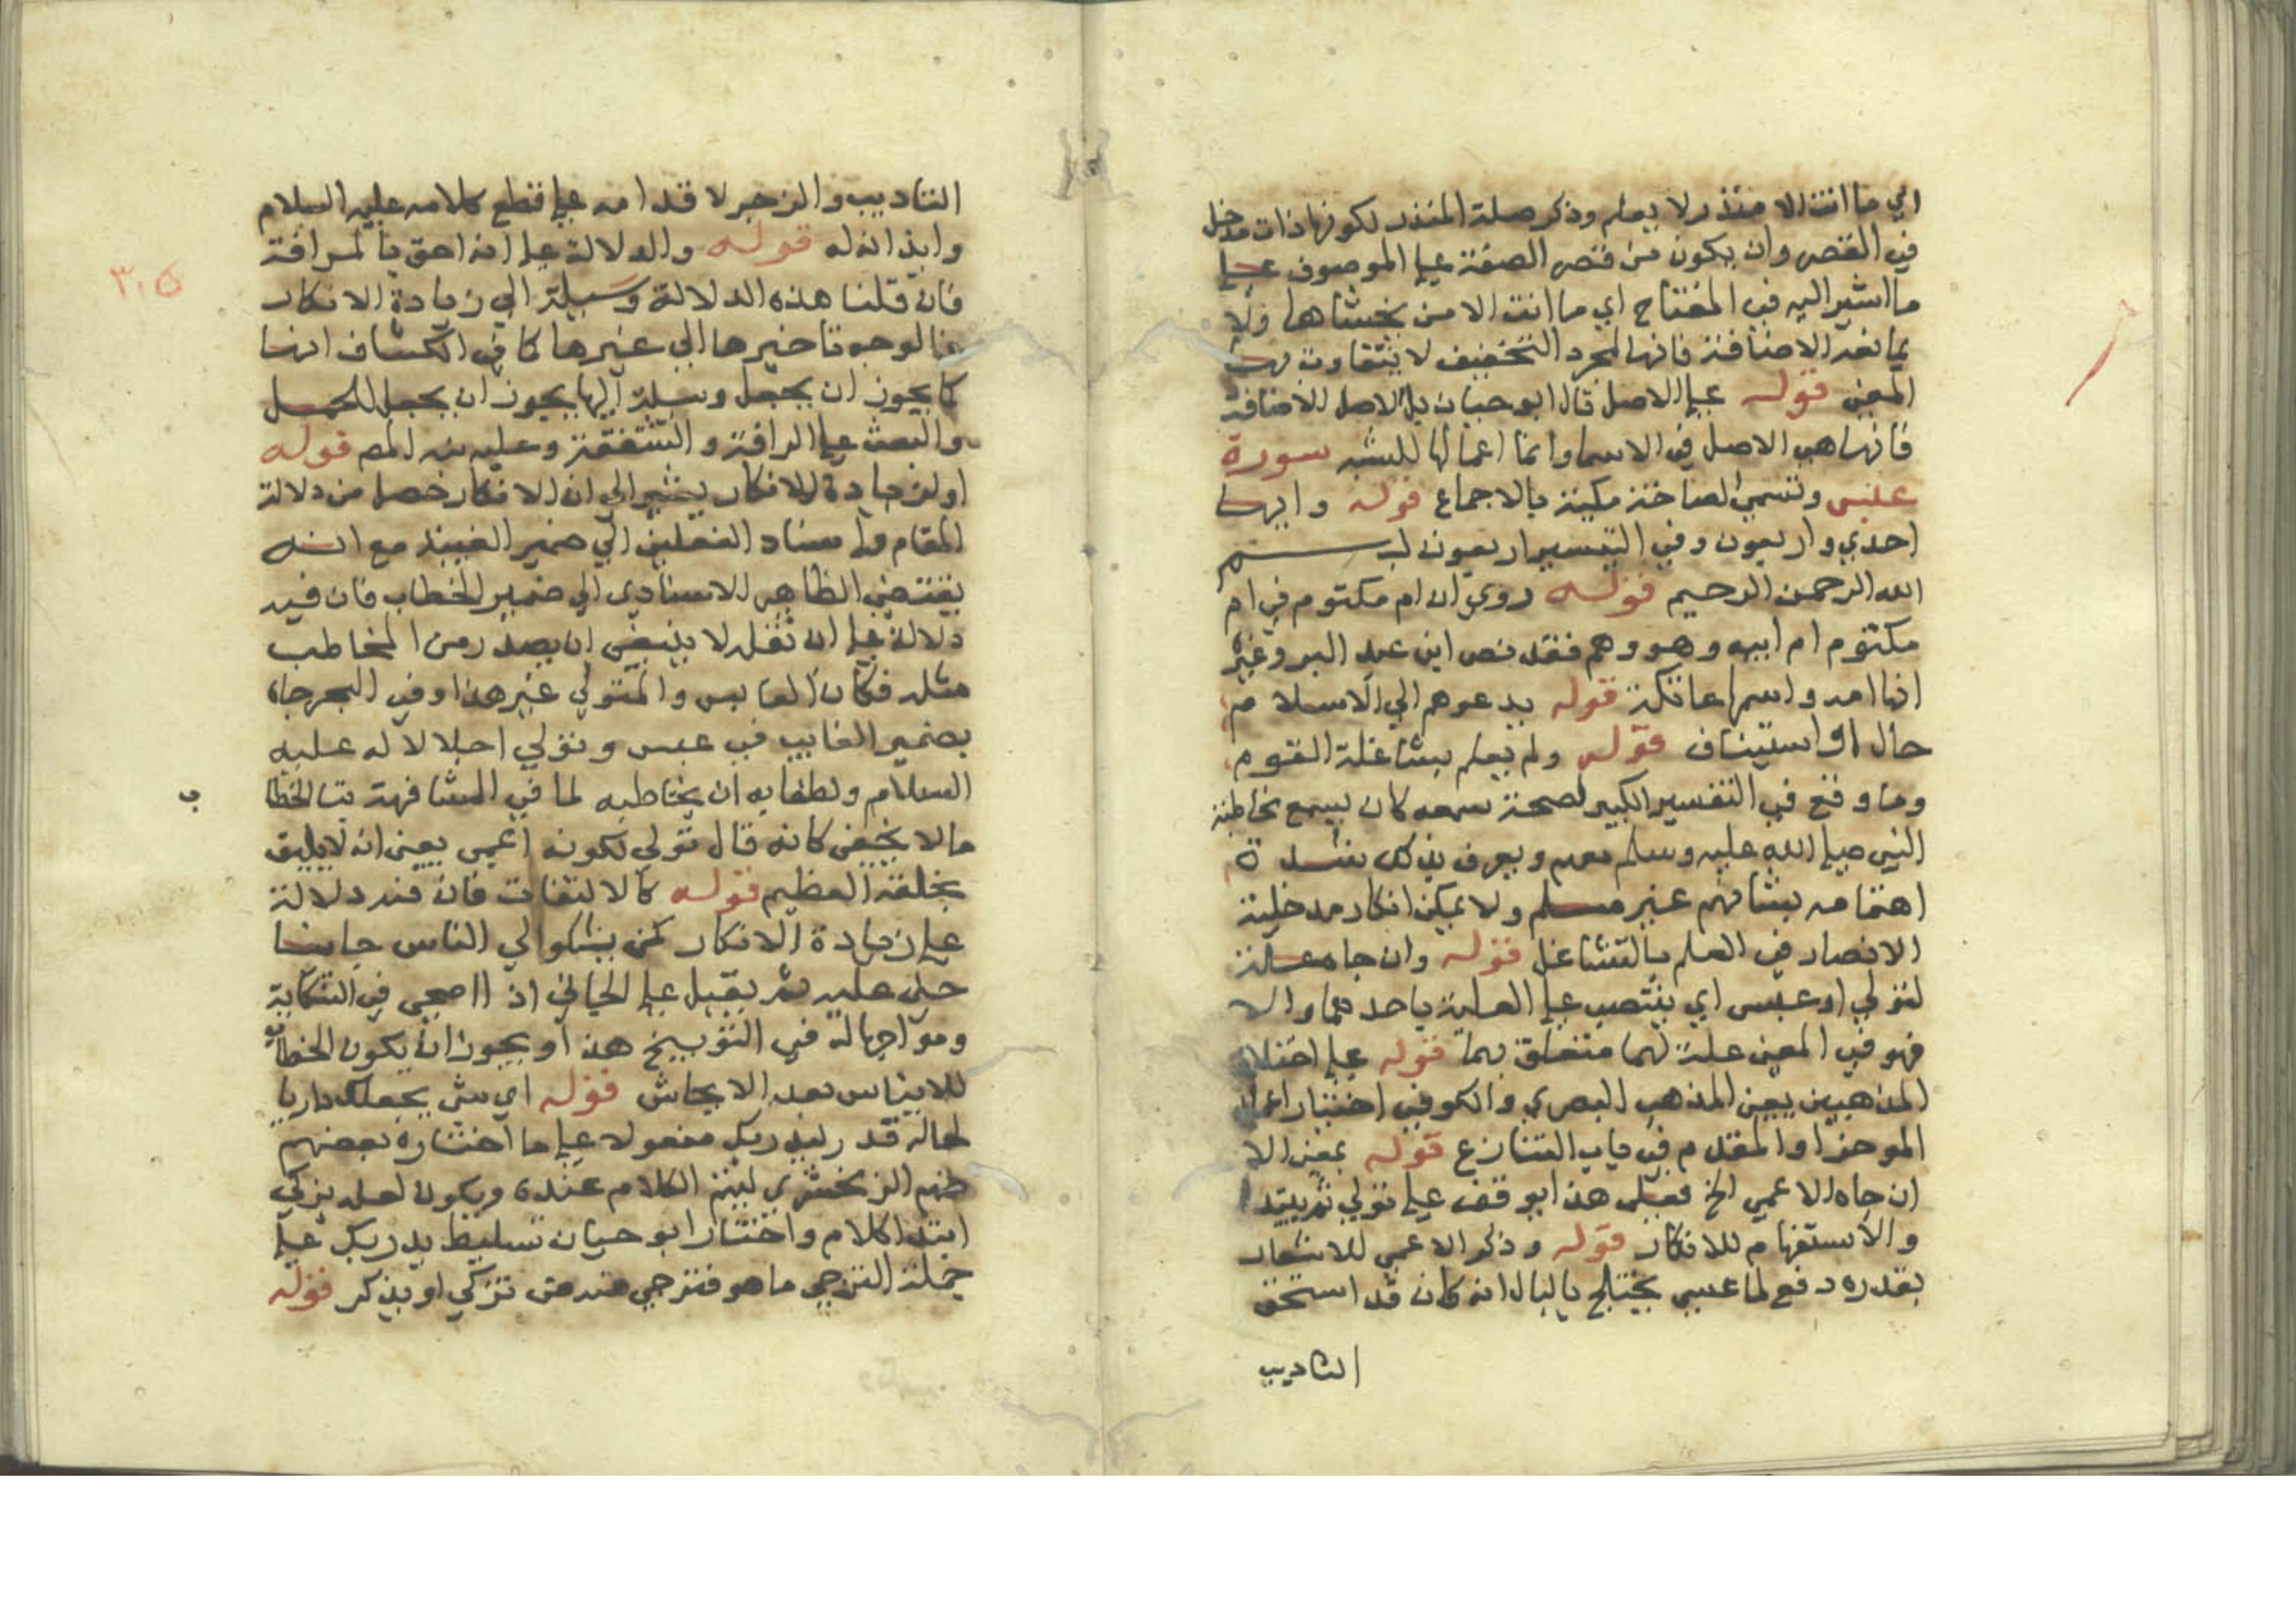 اي ما انت الا منذر لا يعلم وذكر صلة المنذر لكونها ذات مدخل
في القصر وان يكون من قصر الصفة على الموصوف على
ما اشير اليه في المفتاح اي ما انت الا من يخشاها ولا
يمانعه الاضافة فانها لمجرد التخفيف لا يتفاوت بها
المعنى قوله على الاصل قال ابو حيان بل الاصل الاضافة
فانها هي الاصل في الاسما وانما اعمالها للشبه سورة
عبس وتسمى الصاخة مكية بالاجماع قوله وايها
احدي واربعون وفي التيسير اربعون بسم
الله الرحمن الرحيم قوله روي ان ام مكتوم في ام
مكتوم ام ابيه وهو وهم فقد نص ابن عبد البر وغيره
انها امه واسمها عاتكة قوله يدعوهم الي الاسلام
حال او استيناف قوله ولم يعلم بشاغله القوم
وما وقع في التفسير الكبير لصحة سمعه كان يسمع مخاطبة
النبي صلي الله عليه وسلم معهم ويعرف بذلك شدة
اهتمامه بشانهم غير مسلم ولا يمكن انكار مدخلية
الابصار في العلم بالتشاغل قوله وان جا علة
لتولي او عبس اي ينتصب على العلية باحدهما والا
فهو في المعنى علة لهما متعلق بهما قوله على اختلاف
المذهبين يعني المذهب البصري والكوفي اختيار اعمال
الموخر او المقدم في باب التنازع قوله بمعني الا
ان جاه الاعمي الخ فعلى هذا يوقف على تولي ثم يبتدا
والاستفهام للانكار قوله وذكر الاعمي للاشعار
بعذره دفع لما عسي يختلج بالبال انه كان قد استحق
التاديب
التاديب والزجر لاقدامه على قطع كلامه عليه السلام
وايذانه له قوله والدلالة على انه احق بالرافة
فان قلنا هذه الدلالة وسيلة الي زيادة الانكار
فالوجه تاخيرها الي غيرها كما في الكشاف انها
كما يجوز ان يجعل وسيلة اليها يجوز ان يجعل للحمل
والبعث على الرافة والشفقة وعليه بنه المص قوله
او لزيادة الانكار يشير الي ان الانكار حصل من دلالة
المقام واسناد الفعلين الي ضمير الغيبة مع انه
يقتضي الظاهر الاسنادي الي ضمير الخطاب فان فيه
دلالة على ان فعله لا ينبغي ان يصدر من المخاطب
مثله فكان العابس والمتولي غير هذا وفي البحر جاء
بضمير الغايب في عبس وتولي اجلالا له عليه
السلام ولطفا به ان يخاطبه لما في المشافهة بتا الخطاب
ما لا يخفى كانه قال تولي لكونه اعمي يعني انه لا يليق
بخلقه العظيم قوله كالالتفات فان فيه دلالة
على زيادة الانكار كمن يشكو الي الناس جانيا
جنى عليه ثم يقبل على الجاني اذا احمي في الشكاية
ومواجها له في التوبيخ هذا ويجوز ان يكون الخطاب
للايناس بعد الايحاش قوله اي شي يجعلك داريا
لحاله قدر ليدريك مفعولا على ما اختاره بعضهم
منهم الزمخشري ليتم الكلام عنده ويكون لعله يزكي
ابتدا كلام واختار ابو حيان تسليط يدريك على
جملة الترجي ما هو فترجي منه من تزكي او يذكر قوله